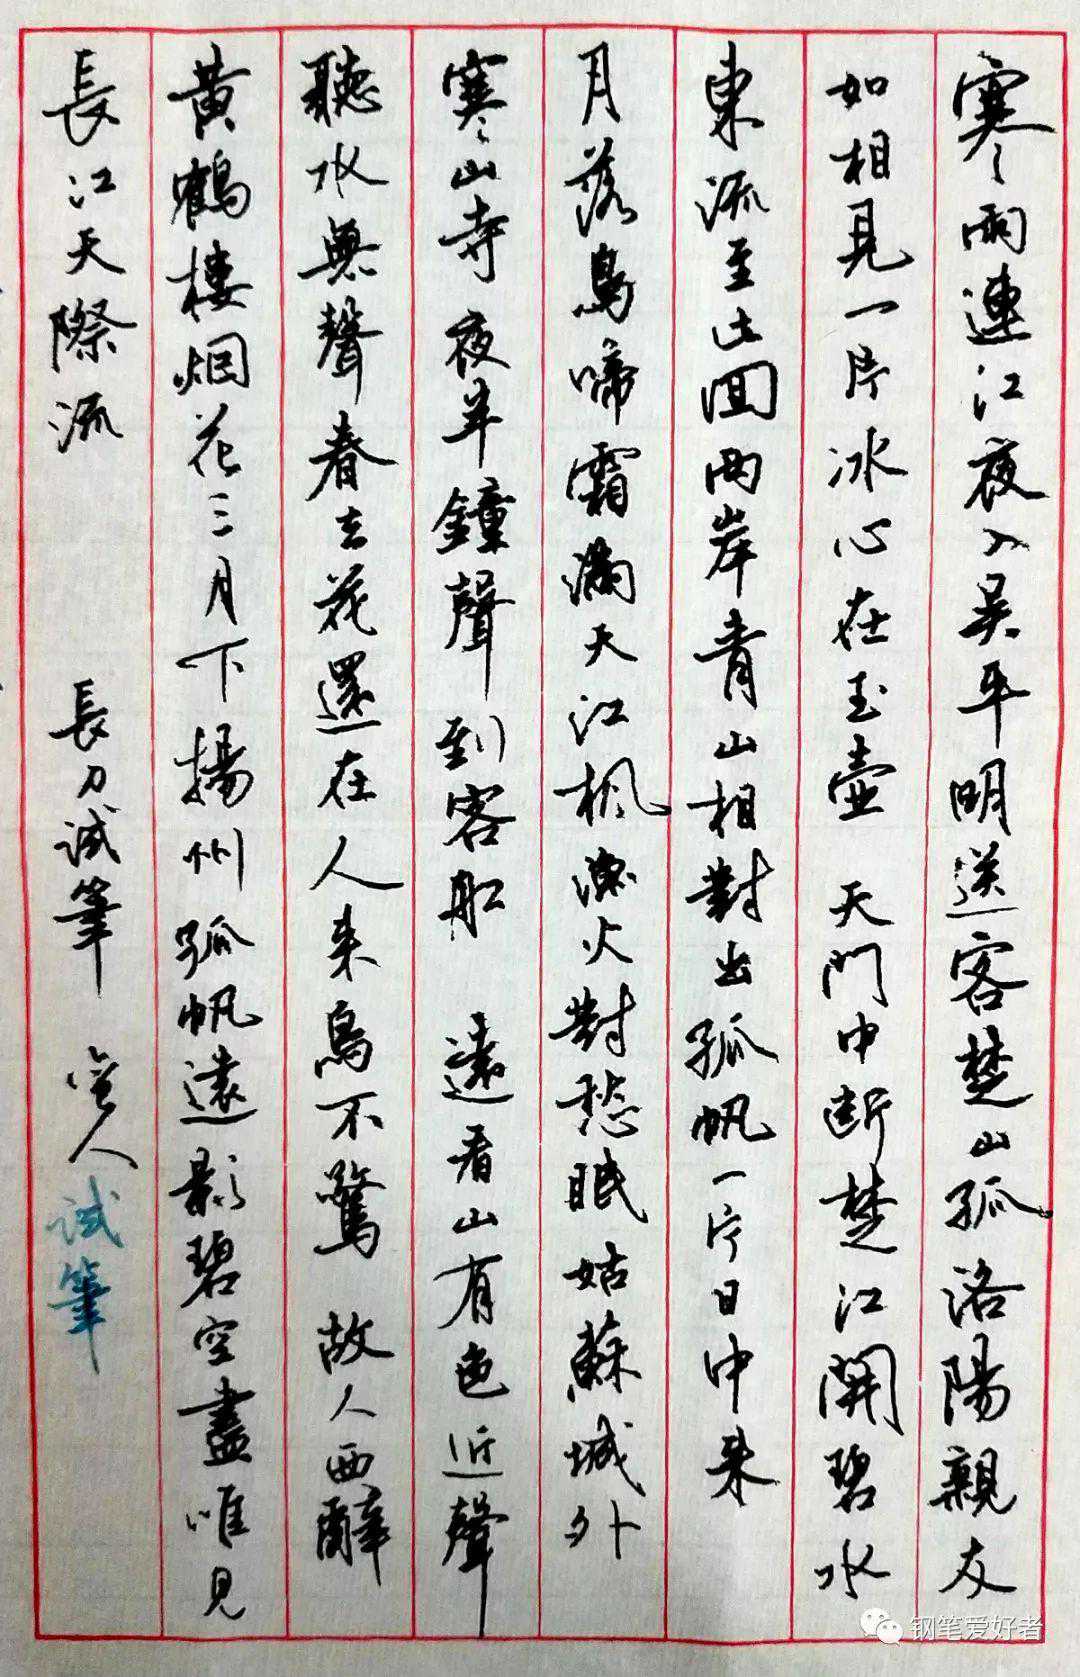 寒雨連江夜入吴平明送客楚山孤洛陽親友
如相見一片冰心在玉壺 天門中断楚江開碧水
東流至此回两岸青山相對出孤帆一片日中来
月落烏啼霜滿天江楓漁火對愁眠姑蘇城外
寒山寺夜半鐘聲到客船 遠看山有色近聲
聽水無聲春去花還在人来鳥不驚 故人西辭
黄鶴樓烟花三月下揚州孤帆遠影碧空盡唯見
長江天際流 長刀試筆 人試筆
钢笔爱好者